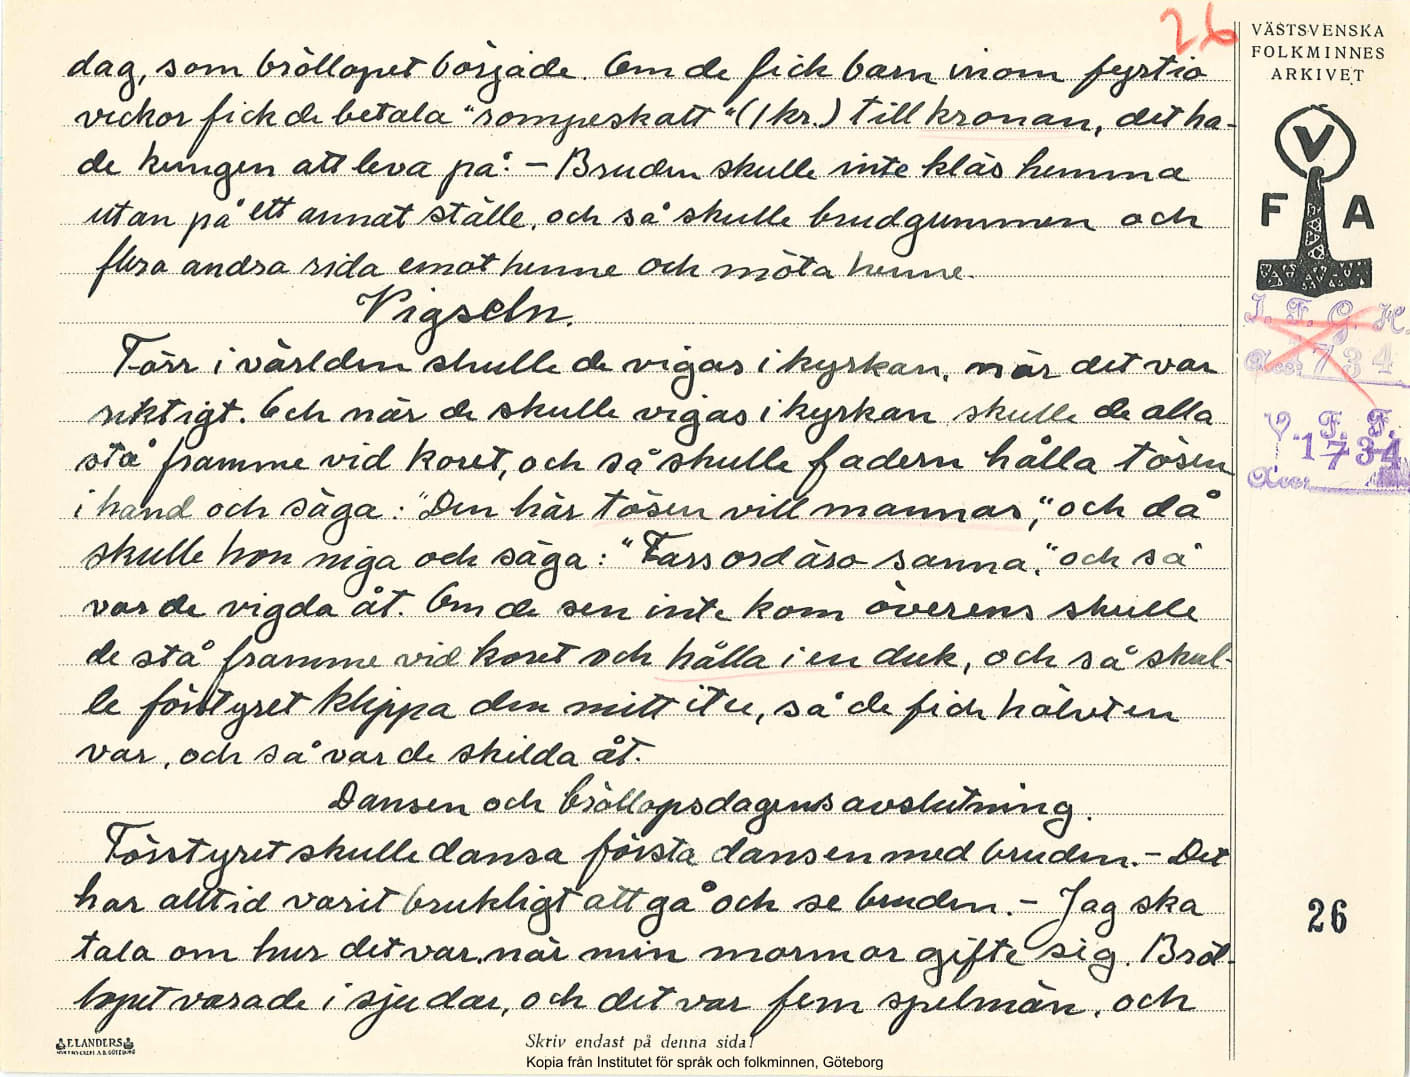 26
VÄSTSVENSKA
FOLKMINNES
ARKIVET
V
F A
I. F. G. H.
Acc: 1734
V. F. F.
1734
Acc:
dag, som bröllopet började. Om de fick barn inom fyrtio
veckor fick de betala "rompeskatt" (1 kr.) till kronan, det ha-
de kungen att leva på. – Bruden skulle inte kläs hemma
utan på ett annat ställe, och så skulle brudgummen och
flera andra rida emot henne och möta henne.
Vigseln.
Förr i världen skulle de vigas i kyrkan, när det var
riktigt. Och när de skulle vigas i kyrkan skulle de alla
stå framme vid koret, och så skulle fadern hålla tösen
i hand och säga: "Den här tösen vill mannas", och då
skulle hon niga och säga: "Fars ord äro sanna", och så
var de vigda åt. Om de sen inte kom överens skulle
de stå framme vid koret och hålla i en duk, och så skul-
le förstyret klippa den mitt itu, så de fick hälvten
var, och så var de skilda åt.
Dansen och bröllopsdagens avslutning.
Förstyret skulle dansa första dansen med bruden. – Det
har alltid varit brukligt att gå och se bruden. – Jag ska
tala om hur det var, när min mormor gifte sig. Bröl-
lopet varade i sju dar, och det var fem spelmän, och
26
ELANDERS
Skriv endast på denna sida!
Kopia från Institutet för språk och folkminnen, Göteborg